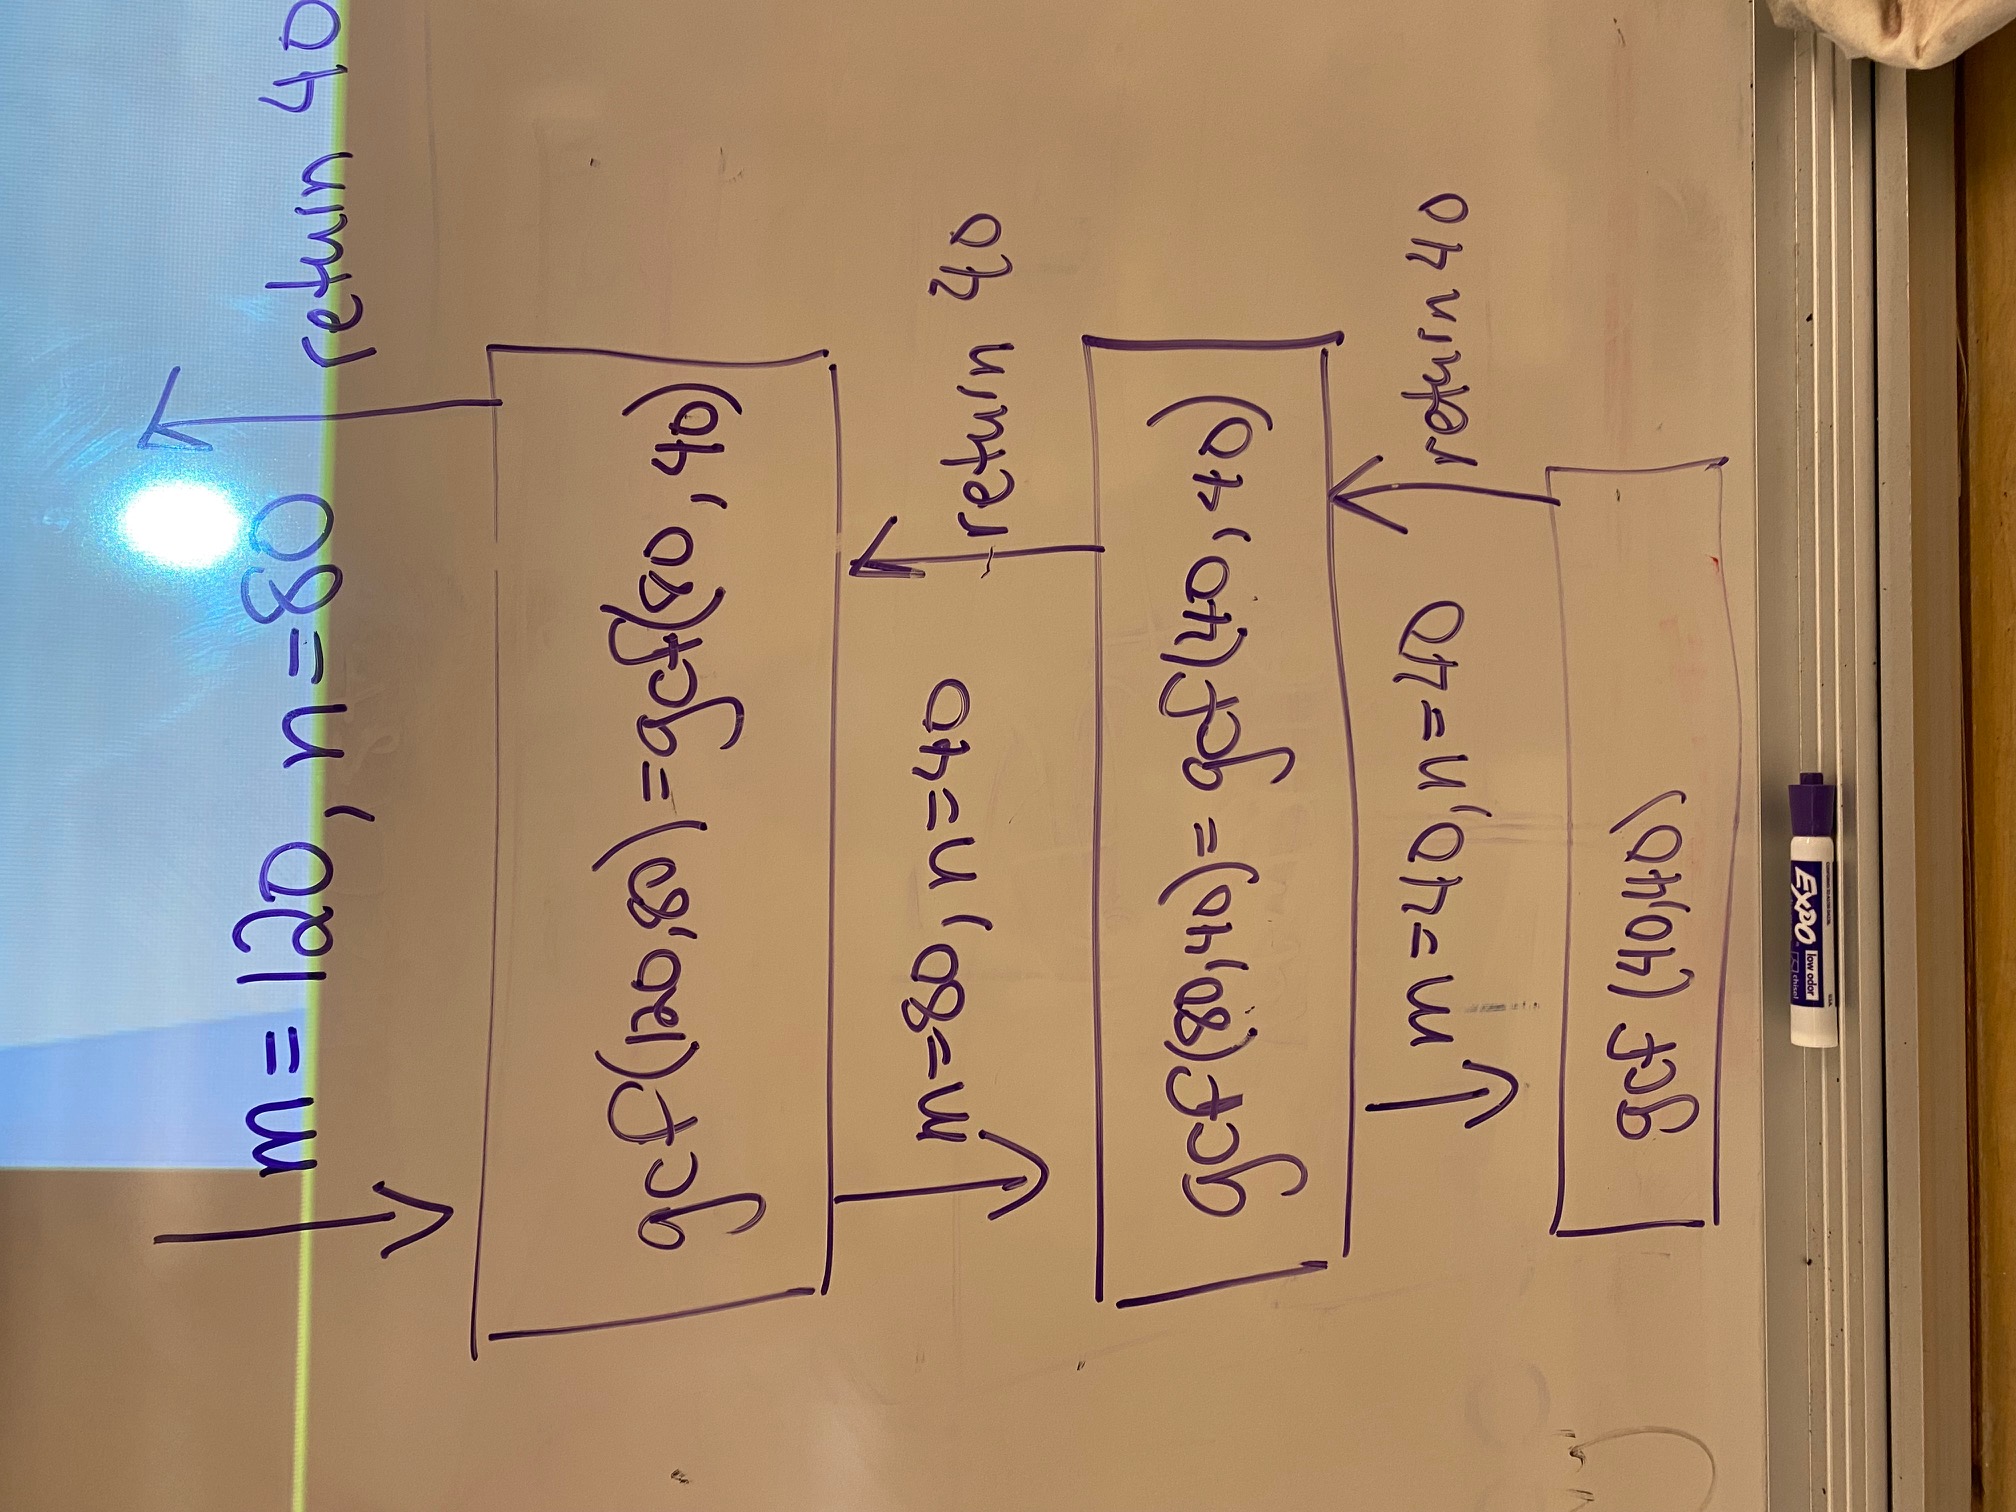 m=120, n=80
return 40
gcf(120,80)=gcf(80,40)
m=80, n=40
return 40
gcf(80,40)=gcf(40,40)
m=40, n=40
return 40
gcf (40,40)
EXPO
low odor
chisel